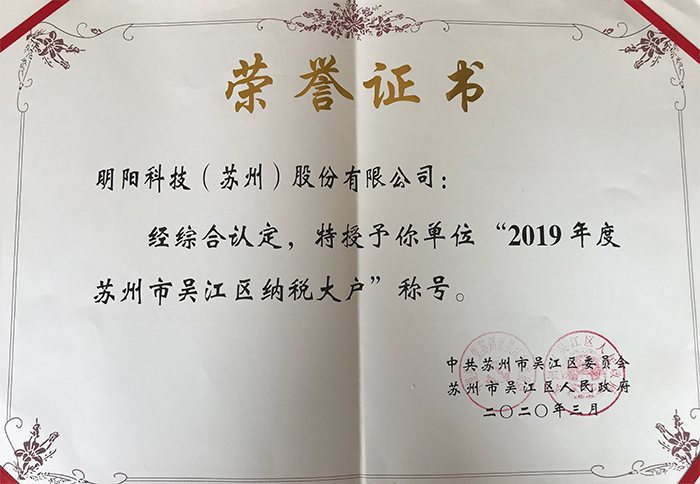 荣誉证书
明阳科技（苏州）股份有限公司：
经综合认定，特授予你单位“2019年度
苏州市吴江区纳税大户”称号。
中共苏州市吴江区委员会
苏州市吴江区人民政府
二〇二〇年三月